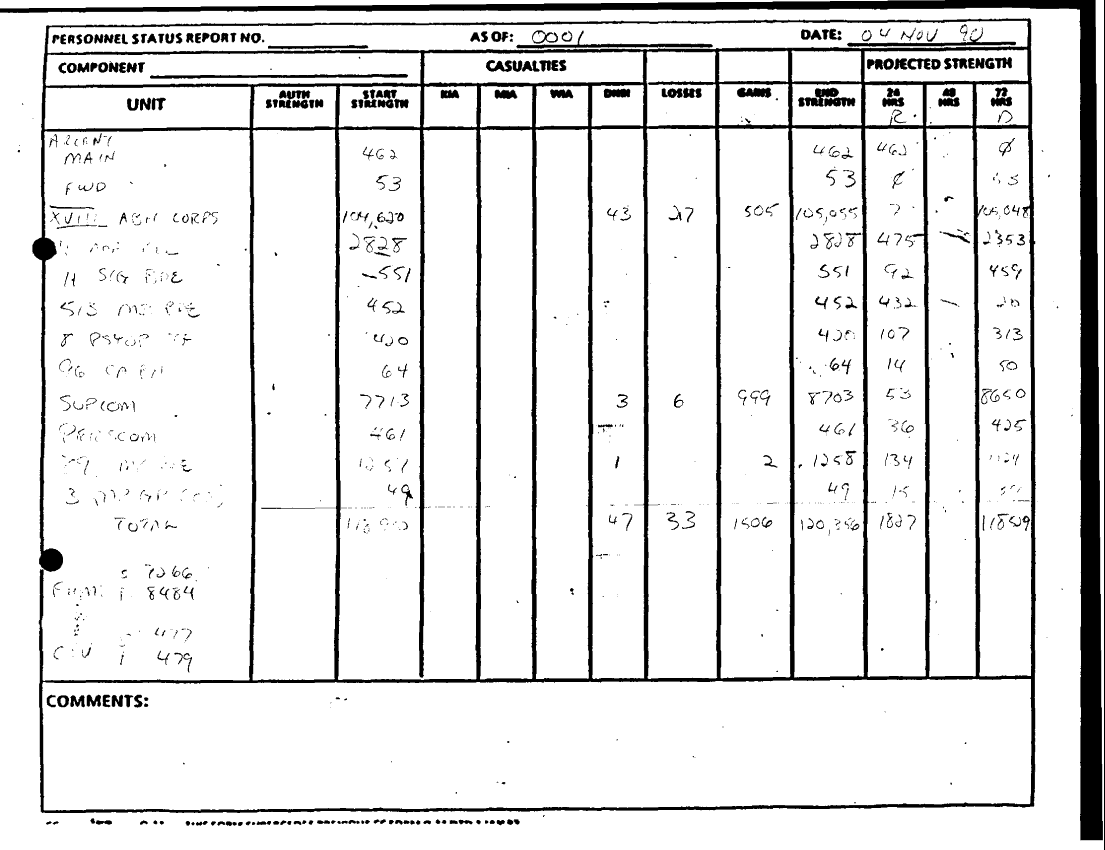 PERSONNEL STATUS REPORT NO. AS OF: 0001 DATE: 04 NOV 90
COMPONENT CASUALTIES PROJECTED STRENGTH
UNIT AUTH STRENGTH START STRENGTH KIA MIA WIA DNBI LOSSES GAINS END STRENGTH 24 HRS 48 HRS 72 HRS
R D
MAIN 462 462 462 Ø
FWD 53 53 Ø
XVIII ABN CORPS 104,620 43 27 505 105,055 7 105,048
2828 2828 475 — 2353
11 SIG BDE 551 551 92 459
513 452 452 432 — 20
8 PSYOP 420 420 107 313
96 CA BN 64 64 14 50
SUPCOM 7713 3 6 999 8703 53 8650
PERSCOM 461 461 36 425
1257 1 2 1258 134 1124
3 49 49 15
TOTAL 47 33 1506 120,396 1827 118509
7266
8484
477
CIV 479
COMMENTS: